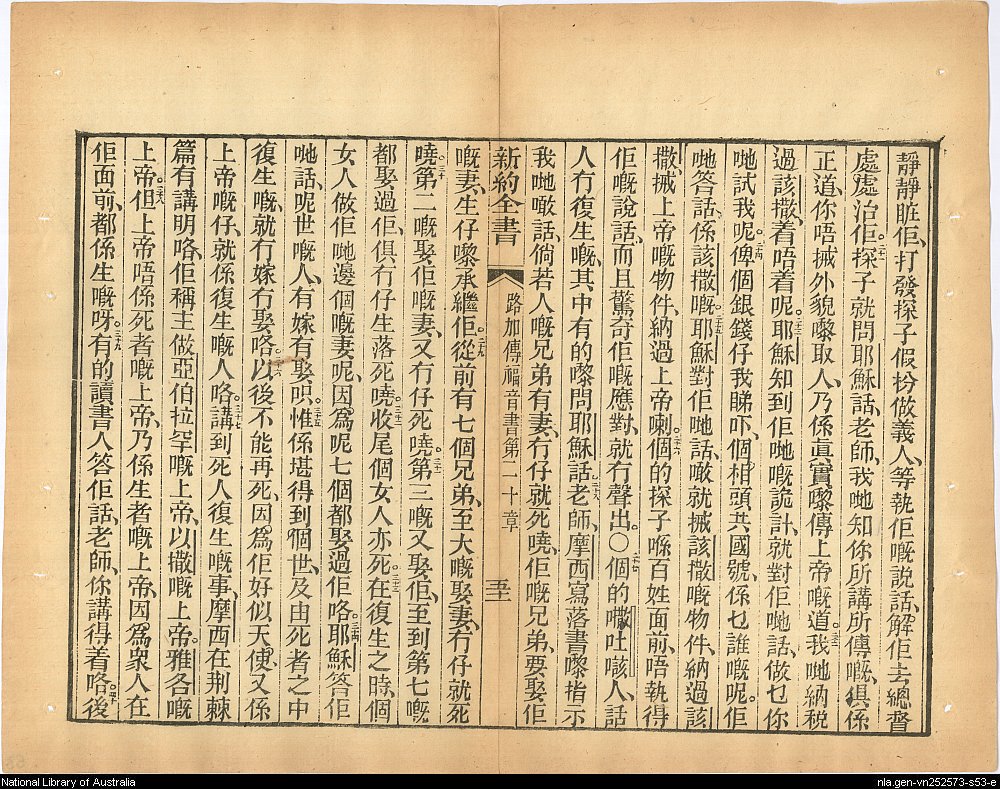 靜靜佢、打發探子假扮做義人、等執佢嘅說話、解佢去總督
處處治佢。二十一探子就問耶穌話、老師、我哋知你所講所傳嘅、俱係
正道、你唔搣外貌嚟取人、乃係眞實嚟傳上帝嘅道。二十二我哋納稅
過該撒、着唔着呢。二十三耶穌知到佢哋嘅詭計、就對佢哋話、做乜你
哋試我呢。二十四俾個銀錢仔我睇吓、個相頭共國號、係乜誰嘅呢。佢
哋答話、係該撒嘅。二十五耶穌對佢哋話、噉就搣該撒嘅物件、納過該
撒、搣上帝嘅物件、納過上帝喇。二十六個的探子喺百姓面前、唔執得
佢嘅說話、而且驚奇佢嘅應對、就冇聲出。○二十七個的嘥吐咳人、話
人冇復生嘅、其中有的嚟問耶穌話、二十八老師、摩西寫落書嚟指示
我哋噉話、倘若人嘅兄弟有妻、冇仔就死嘵、佢嘅兄弟、要娶佢
新約全書 路加傳福音書第二十章 五十一
嘅妻、生仔嚟承繼佢。二十九從前有七個兄弟、至大嘅娶妻、冇仔就死
嘵。三十第二嘅娶佢嘅妻、又冇仔死嘵。三十一第三嘅又娶佢、至到第七嘅
都娶過佢、俱冇仔生落死嘵。三十二收尾個女人亦死。三十三在復生之時、個
女人做佢哋邊個嘅妻呢、因爲呢七個都娶過佢咯。三十四耶穌答佢
哋話、呢世嘅人、有嫁有娶唄。三十五惟係堪得到個世、及由死者之中
復生嘅、就冇嫁冇娶咯。三十六以後不能再死、因爲佢好似天使、又係
上帝嘅仔、就係復生嘅人咯。三十七講到死人復生嘅事、摩西在荆棘
篇有講明咯、佢稱主做亞伯拉罕嘅上帝、以撒嘅上帝、雅各嘅
上帝。三十八但上帝唔係死者嘅上帝、乃係生者嘅上帝、因爲衆人在
佢面前、都係生嘅呀。三十九有的讀書人答佢話、老師、你講得着咯。四十後
National Library of Australia
nla.gen-vn252573-s53-e